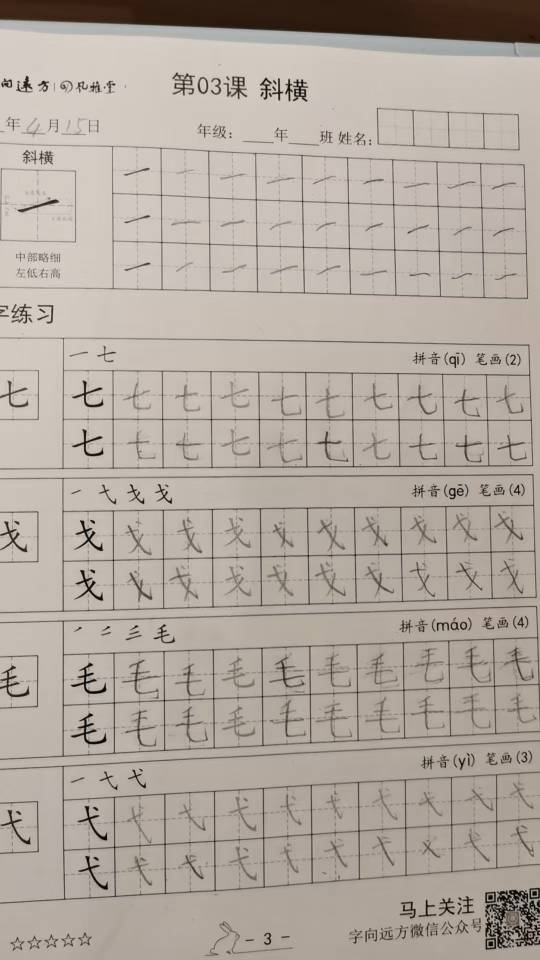 向远方 | 砚雅堂
第03课 斜横
年4月15日 年级：____年____班 姓名：
斜横
一 一 一 一 一 一 一 一 一
一 一 一 一 一 一 一 一 一
中部略细
左低右高
一 一 一 一 一 一 一 一 一
字练习
一 七 拼音(qī) 笔画(2)
七 七 七 七 七 七 七 七 七 七 七
七 七 七 七 七 七 七 七 七 七
一 弋 戈 戈 拼音(gē) 笔画(4)
戈 戈 戈 戈 戈 戈 戈 戈 戈 戈 戈
戈 戈 戈 戈 戈 戈 戈 戈 戈 戈
㇒ 二 三 毛 拼音(máo) 笔画(4)
毛 毛 毛 毛 毛 毛 毛 毛 毛 毛 毛
毛 毛 毛 毛 毛 毛 毛 毛 毛 毛
一 七 弋 拼音(yì) 笔画(3)
弋 弋 弋 弋 弋 弋 弋 弋 弋 弋 弋
弋 弋 弋 弋 弋 弋 弋 弋 弋 弋
马上关注
字向远方微信公众号
☆☆☆☆☆ - 3 -